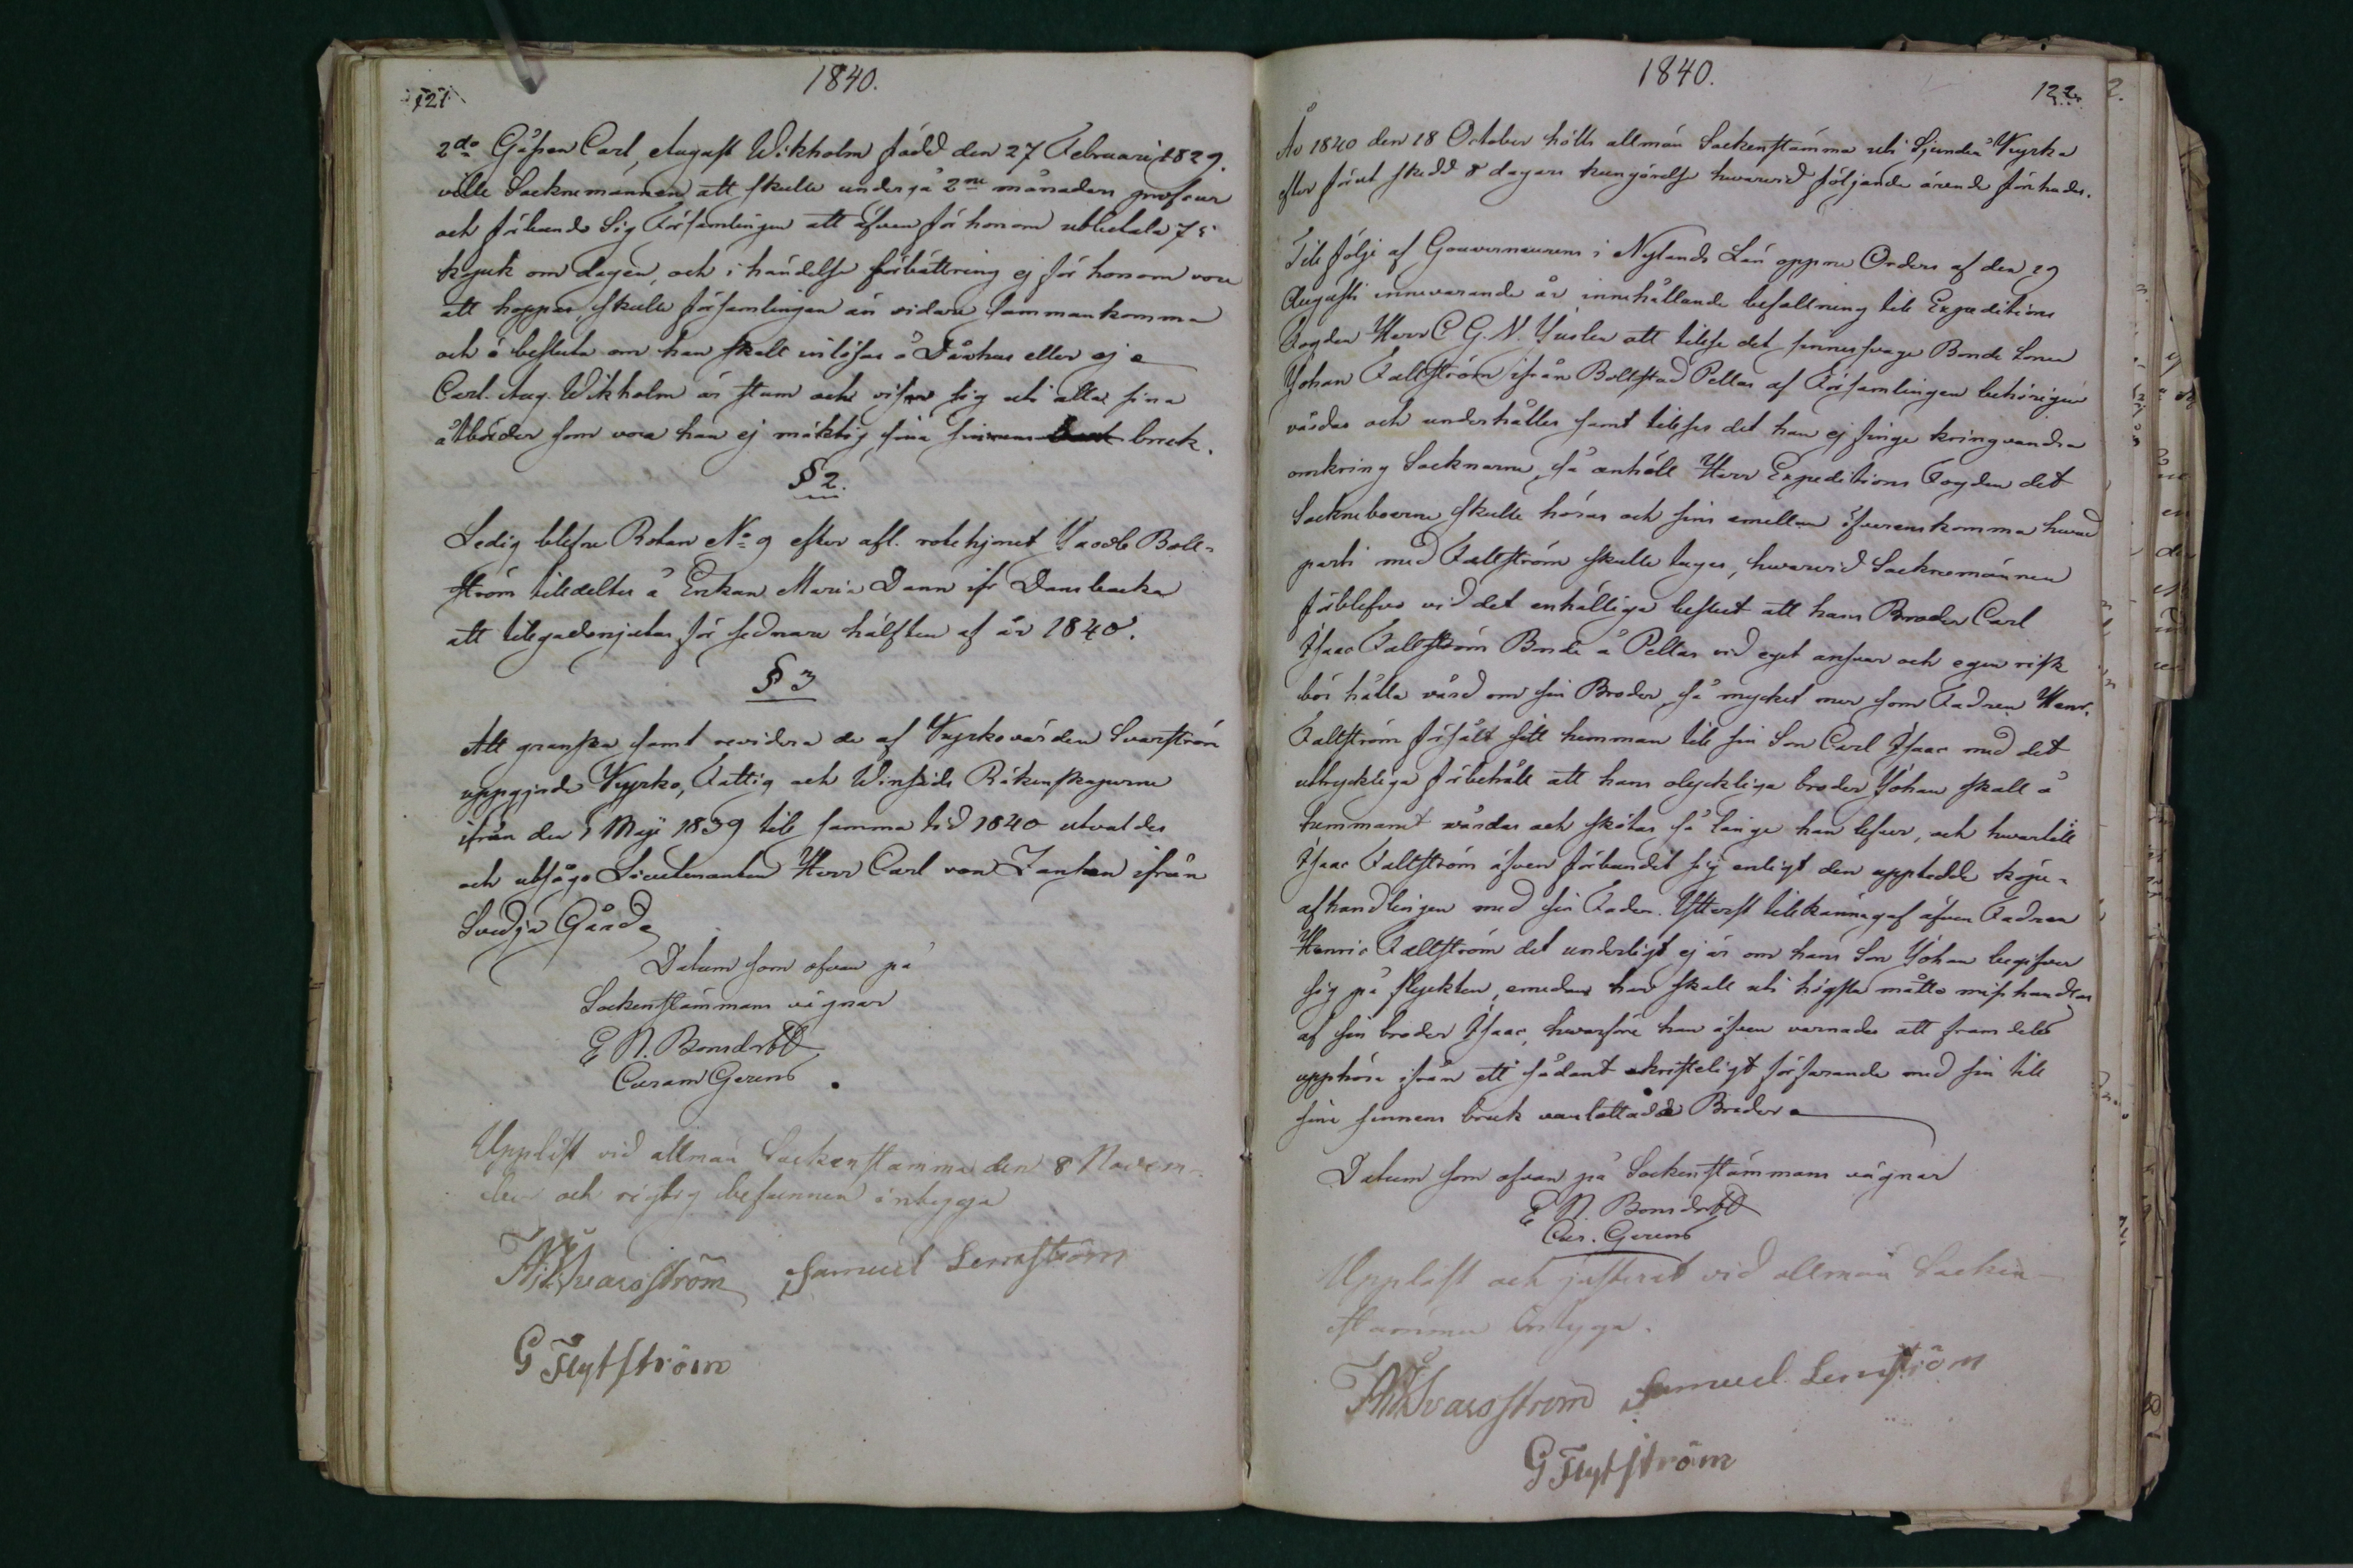 1840.
121
2do Gåssen Carl August Wikholm född den 27 Februari 1829.
ville Socknemännen att skulle undergå 2ne månaders profcur
och förband Sig Församlingen att äfven för honom utbetala 75
kopek om dagen, och i händelse förbättring ej för honom vore
att hoppas, skulle församlingen än vidare sammankomma
och besluta om han skall inlösas å Dårhus eller ej
Carl Aug. Wikholm är stum och visar sig uti alla sina
åtbörder som vore han ej mäktig sina sinnens bruk.
§ 2.
Ledig blefne Rotan No 9 efter afl. rotehjonet Jacob Boll-
ström tilldeltes å Enkan Maria Dann ifr Dansbacka
att tillgodonjutas för sednare hälften af år 1840.
§ 3
Att granska samt revidera de af Kyrkovärden Svarström
uppgjorde Kyrko, Fattig och Winfads Räkenskaperne
ifrån den 1 Maji 1839 till samma tid 1840 utvaldes
och utsågs Lieutenanten Herr Carl von Zansen ifrån
Svidja Gård
Datum som ofvan på
Sockenstämmans vägnar
E N. Bonsdorff
Curam Gerens
Uppläst vid allmän Sockenstämma den 8 Novem-
ber och rigtig befunnen intyga
Svarsström Samuel Lernström
G Flytström
1840.
122
År 1840 den 18 October hölls allmän Sockenstämma uti Sjundeå Kyrka
efter förut skedd 8 dagars kungörelse hvarvid följande ärende förehades.
Till följe af Gouverneurens i Nylands Län öppne Orders af den 29
Augusti innevarande år innehållande befallning till Expeditions
Fogden Herr C. G. N. Yuslen att tillse det sinnessvage Bonde Sonen
Johan Faltström ifrån Bollstad Pellas af Församlingen behörigen
vårdas och underhålles samt tillses det han ej finge kringvandra
omkring Socknarne, så anhöll Herr Expeditions Fogden det
Sockneboerne skulle höras och sins emellan öfverenskomma hvad
parti med Faltström skulle tagas, hvarvid Socknemännen
förblefvo vid det enhälliga beslut att hans Broder Carl
Isaac Faltström Bonde å Pellas vid eget ansvar och egen risk
bör hålla vård om sin Broder, så mycket mer som Fadren Henr.
Faltström försålt sitt hemman till sin Son Carl Isaac med det
uttryckliga förbehåll att hans olyckliga broder Johan skall å
hemmanet vårdas och skötas så länge han lefver, och hvartill
Isaac Faltström äfven förbundit sig enligt den upptedde köpe-
afhandlingen med sin Fader. Ytterst tillkännagaf äfven Fadren
Henric Faltström det underligt ej är om hans Son Johan begifver
sig på flyckten, emedan han skall uti högsta måtto misshandlas
af sin broder Isaac, hvarföre han äfven varnades att framdeles
upphöra ifrån ett sådant okristeligt förfarande med sin till
sine sinnens bruk vanlottade Broder
Datum som ofvan på Sockenstämmans vägnar
E N. Bonsdorff
Cur. Gerens
Uppläst och justerat vid allmän Socken-
stämma Intyga.
Svarsström Samuel Lernström
G Flytström